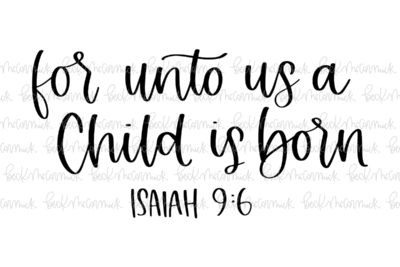 for unto us a
Child is born
ISAIAH 9:6